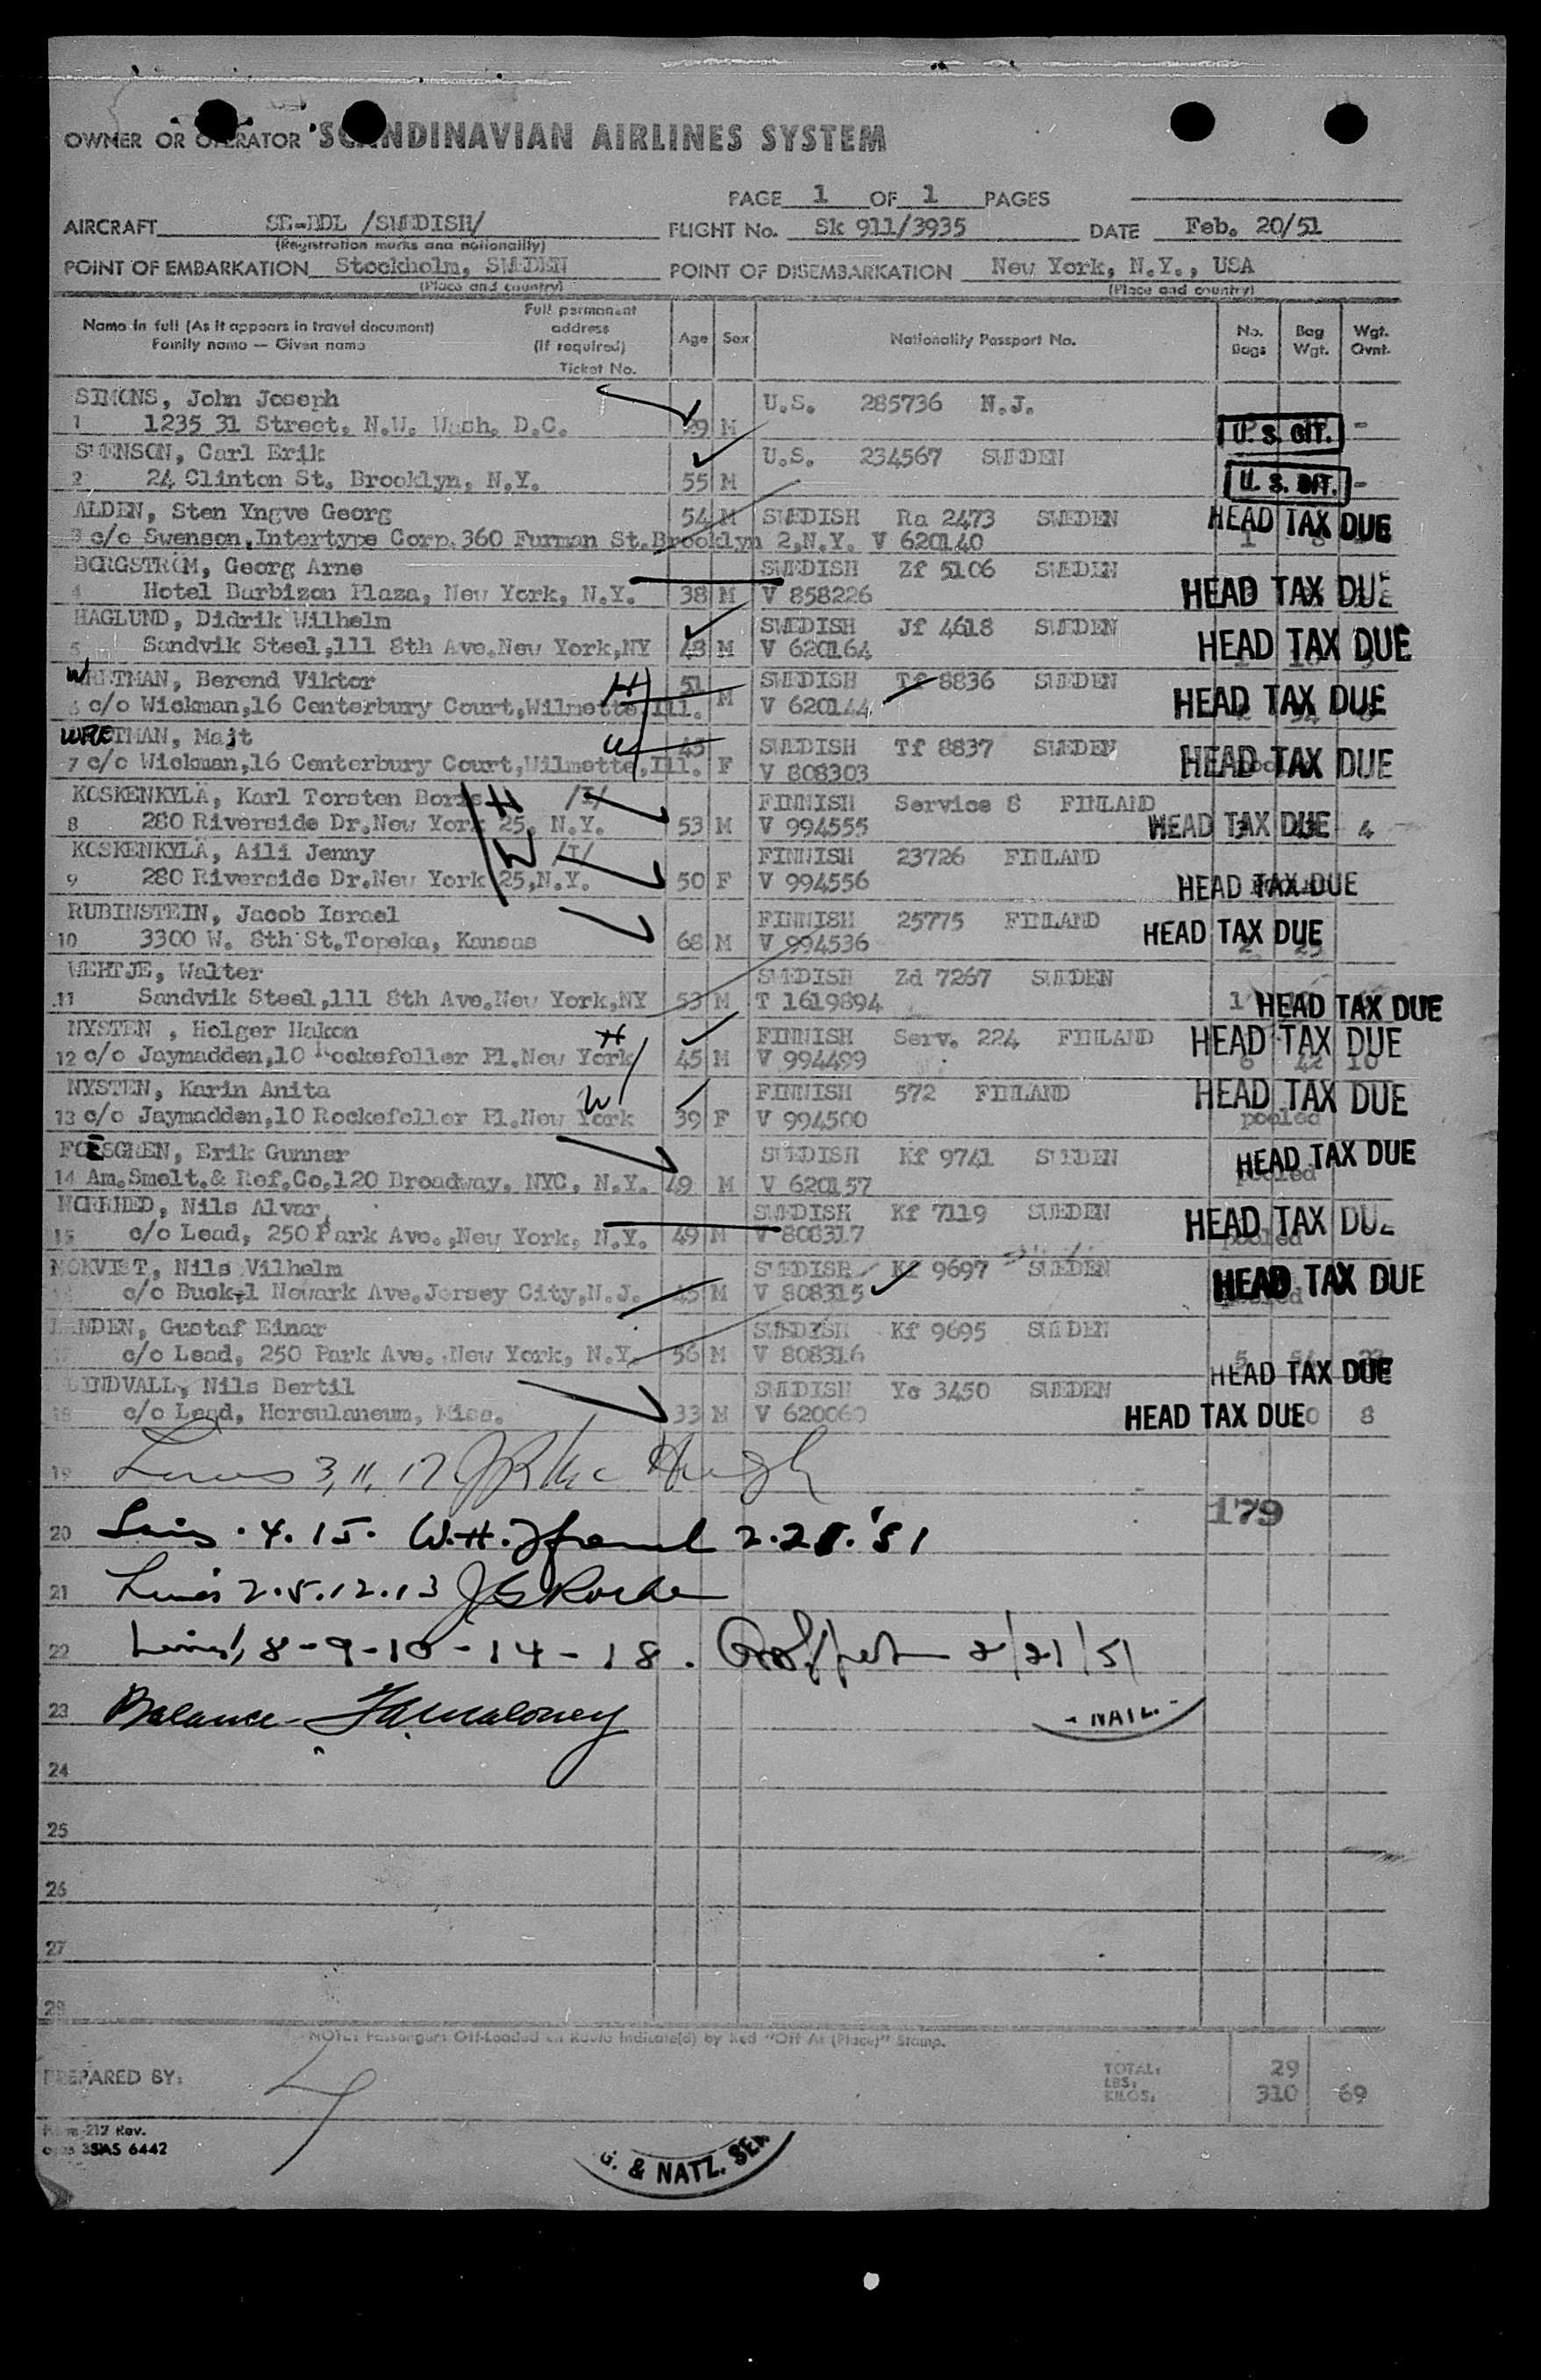 OWNER OR OPERATOR SCANDINAVIAN AIRLINES SYSTEM
PAGE 1 OF 1 PAGES
AIRCRAFT SE-BDL /SWEDISH/ FLIGHT No. Sk 911/3935 DATE Feb. 20/51
(Registration marks and nationality)
POINT OF EMBARKATION Stockholm, SWEDEN POINT OF DISEMBARKATION New York, N.Y., USA
(Place and country) (Place and country)
Name in full (As it appears in travel document) Family name — Given name Full permanent address (If required) Ticket No. Age Sex Nationality Passport No. No. Bags Bag Wgt. Wgt. Ovnt.
SIMONS, John Joseph U.S. 285736 N.J.
1 1235 31 Street, N.W. Wash. D.C. 29 M U.S. CIT. -
SWENSON, Carl Erik U.S. 234567 SWEDEN
2 24 Clinton St. Brooklyn, N.Y. 55 M U. S. CIT. -
ALDEN, Sten Yngve Georg 54 M SWEDISH Ra 2473 SWEDEN HEAD TAX DUE
3 c/o Swenson, Intertype Corp. 360 Furman St. Brooklyn 2,N.Y. V 620140 1
BERGSTRÖM, Georg Arne SWEDISH Zf 5106 SWEDEN
4 Hotel Barbizon Plaza, New York, N.Y. 38 M V 858226 HEAD TAX DUE
HAGLUND, Didrik Wilhelm SWEDISH Jf 4618 SWEDEN
5 Sandvik Steel,111 8th Ave.New York,NY 48 M V 620164 HEAD TAX DUE
WRETMAN, Berend Viktor H 51 SWEDISH Tf 8836 SWEDEN
6 c/o Wickman,16 Canterbury Court,Wilmette,Ill. M V 620144 HEAD TAX DUE
WRETMAN, Majt W 45 SWEDISH Tf 8837 SWEDEN
7 c/o Wickman,16 Canterbury Court,Wilmette,Ill. F V 808303 HEAD TAX DUE
KOSKENKYLÄ, Karl Torsten Boris H /I/ FINNISH Service 8 FINLAND
8 280 Riverside Dr.New York 25, N.Y. 53 M V 994555 HEAD TAX DUE 4
KOSKENKYLÄ, Aili Jenny W /I/ FINNISH 23726 FINLAND
9 280 Riverside Dr.New York 25,N.Y. 50 F V 994556 HEAD TAX DUE
RUBINSTEIN, Jacob Israel FINNISH 25775 FINLAND
10 3300 W. 8th St.Topeka, Kansas 68 M V 994536 HEAD TAX DUE
WEHTJE, Walter SWEDISH Zd 7267 SWEDEN
11 Sandvik Steel,111 8th Ave.New York,NY 53 M T 1619894 1 HEAD TAX DUE
NYSTEN , Holger Hakon H FINNISH Serv. 224 FINLAND HEAD TAX DUE
12 c/o Jaymadden,10 Rockefeller Pl.New York 45 M V 994499 6 42 10
NYSTEN, Karin Anita W FINNISH 572 FINLAND HEAD TAX DUE
13 c/o Jaymadden,10 Rockefeller Pl.New York 39 F V 994500 pooled
FORSGREN, Erik Gunnar SWEDISH Kf 9741 SWEDEN HEAD TAX DUE
14 Am.Smelt.& Ref.Co.120 Broadway, NYC, N.Y. 49 M V 620157 pooled
NORRHED, Nils Alvar SWEDISH Kf 7119 SWEDEN HEAD TAX DUE
15 c/o Lead, 250 Park Ave.,New York, N.Y. 49 M V 808317 pooled
Nils Vilhelm SWEDISH Kf 9697 SWEDEN HEAD TAX DUE
16 c/o Buck,1 Newark Ave.Jersey City,N.J. 45 M V 808315 pooled
Gustaf Einar SWEDISH Kf 9695 SWEDEN
17 c/o Lead, 250 Park Ave. New York, N.Y. 56 M V 808316 HEAD TAX DUE
LINDVALL, Nils Bertil SWEDISH Yc 3450 SWEDEN
18 c/o Lead, Herculaneum, Miss. 33 M V 620060 HEAD TAX DUE 8
19 Lines 3, 11, 17 J R Mc Hugh
179
20 Lines . 4. 15. W.H. 2.21.'51
21 Lines 2.5.12.13
22 Lines 1, 8-9-10-14-18. 2/21/51
23 Balance - Maloney
24
25
26
27
28
NOTE: Passengers Off-Loaded En Route Indicate(d) by Red "Off At (Place)" Stamp.
PREPARED BY: TOTAL: 29
LBS:
KILOS: 310 69
Form 217 Rev.
SAS 6442
G. & NATZ. SER